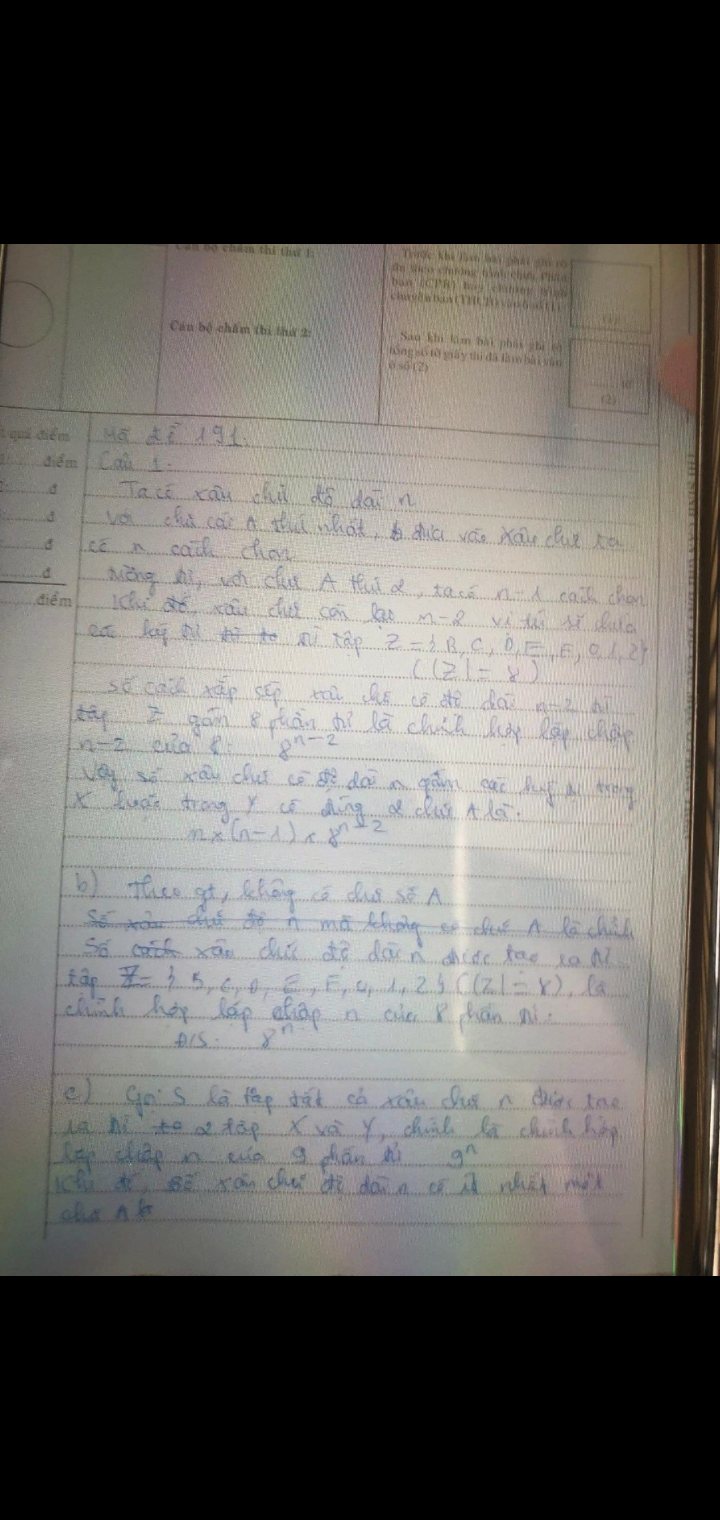 Cán bộ chấm thi thứ 1:
Trước khi làm bài phải ghi rõ
ban (CPB) hay chương trình
chuyên ban (THCB) vào ô số (1)
(1)
Cán bộ chấm thi thứ 2:
Sau khi làm bài phải ghi rõ
tổng số tờ giấy thi đã làm bài vào
ô số (2)
tờ
(2)
quả điểm
điểm
đ
đ
đ
đ
điểm
Mã đề 191.
Câu 1.
Ta có xâu chữ độ dài n
Với chữ cái A thứ nhất, đưa vào xâu chữ ta
có n cách chọn
, với chữ A thứ 2, ta có n-1 cách chọn
Khi đó, xâu chữ còn lại n-2 vị trí sẽ chứa
các ký tự từ tập Z = { B, C, D, E, F, 0, 1, 2}
(|Z| = 8)
Số cách xắp sếp xâu chữ có độ dài n-2 từ
tập Z gồm 8 phần tử là chỉnh hợp lặp chập
n-2 của 8: 8^{n-2}
Vậy số xâu chữ có độ dài n gồm các ký tự trong
X hoặc trong Y có đúng 2 chữ A là:
n x (n-1) x 8^{n-2}
b) Theo gt, không có chữ số A
Số xâu chữ độ n mà không có chữ A là chỉnh
Số cách xâu chữ độ dài n được tạo ra từ
tập Z = { B, C, D, E, F, 0, 1, 2 } (|Z| = 8), là
chỉnh hợp lặp chập n của 8 phần tử:
Đ/S: 8^n
c) Gọi S là tập tất cả xâu chữ n được tạo
ra từ 2 tập X và Y, chính là chỉnh hợp
lặp chập n của 9 phần tử 9^n
Khi đó, số xâu chữ độ dài n có ít nhất một
chữ A là